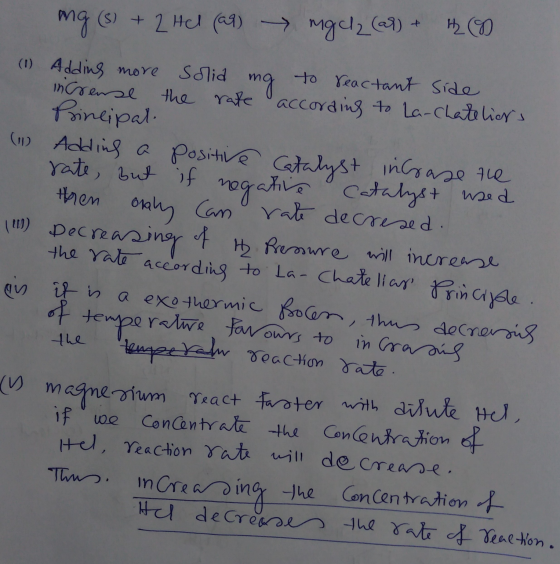 Mg (s) + 2 HCl (aq) → MgCl2 (aq) + H2 (g)
(i) Adding more Solid Mg to reactant side
increase the rate according to La-Chatelior's
Principal.
(ii) Adding a positive Catalyst incrase the
rate, but if negative Catalyst used
then only can rate decresed.
(iii) Decreasing of H2 Pressure will increase
the rate according to La-Chateliar' Principle.
(iv) it is a exothermic Process, thus decreasing
of temperature favours to incrasing
the reaction rate.
(v) Magnesium react faster with dilute HCl,
if we concentrate the concentration of
HCl, reaction rate will decrease.
Thus. increasing the concentration of
HCl decreases the rate of reaction.